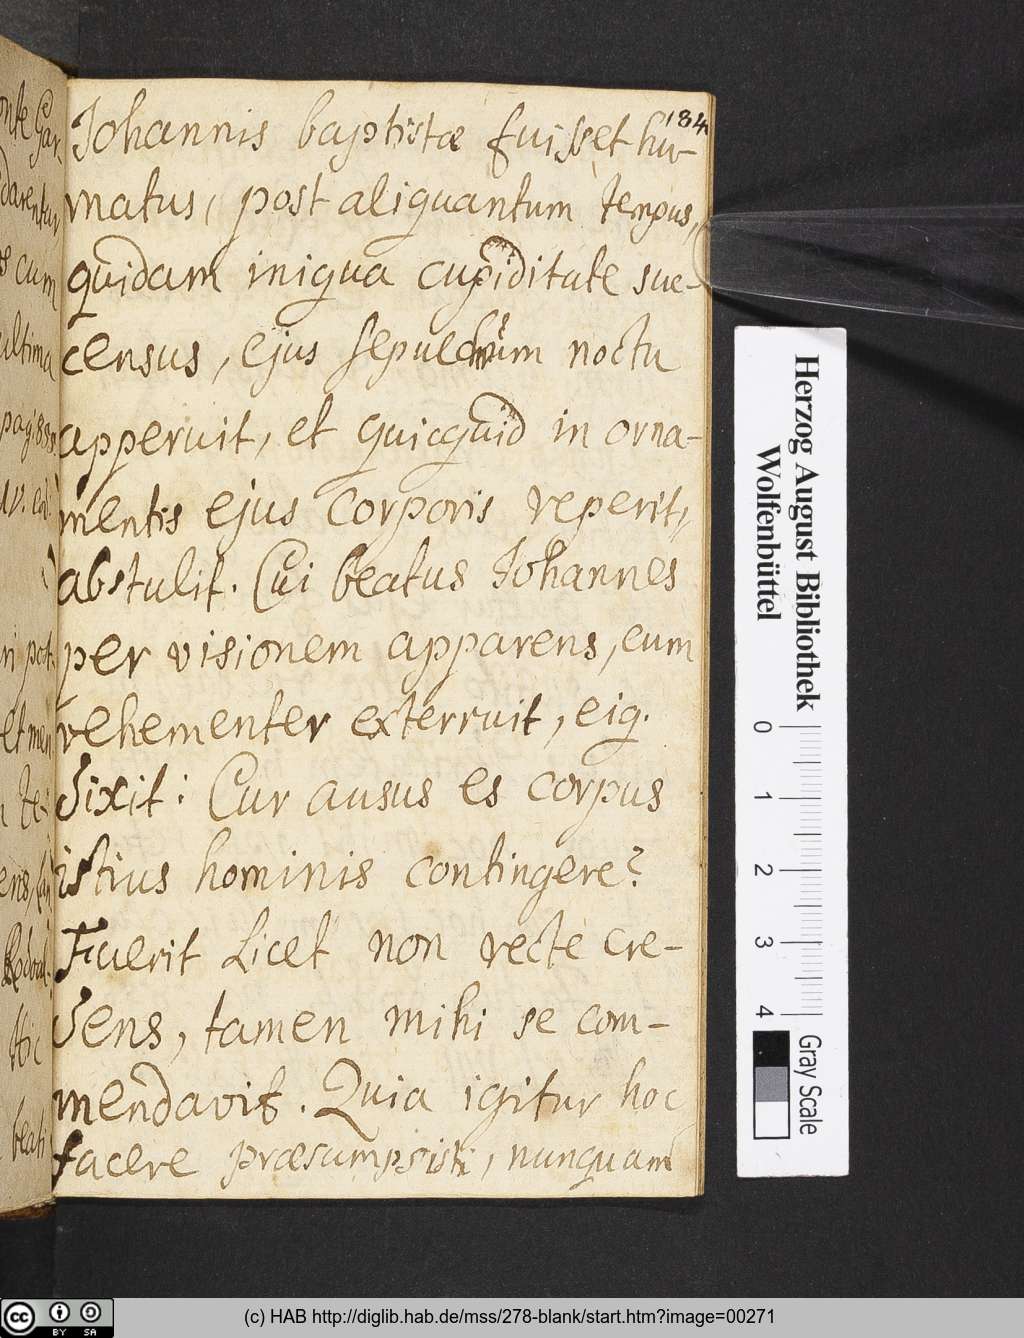 184
Johannis baptistæ fuisset hu-
matus, post aliquantum tempus,
quidam iniqua cupiditate suc-
census, ejus sepulchrum noctu
apperuit, et quicquid in orna-
mentis ejus corporis reperit,
abstulit. Cui beatus Johannes
per visionem apparens, eum
vehementer exterruit, eiq.
dixit: Cur ausus es corpus
istius hominis contingere?
Fuerit licet non recte cre-
dens, tamen mihi se com-
mendavit. Quia igitur hoc
facere præsumpsisti, nunquam
Gar-
darentur
cum
ultima
pag. 888
post-
et men
Hic
beati
Herzog August Bibliothek
Wolfenbüttel
0 1 2 3 4
Gray Scale
cc BY SA
(c) HAB http://diglib.hab.de/mss/278-blank/start.htm?image=00271